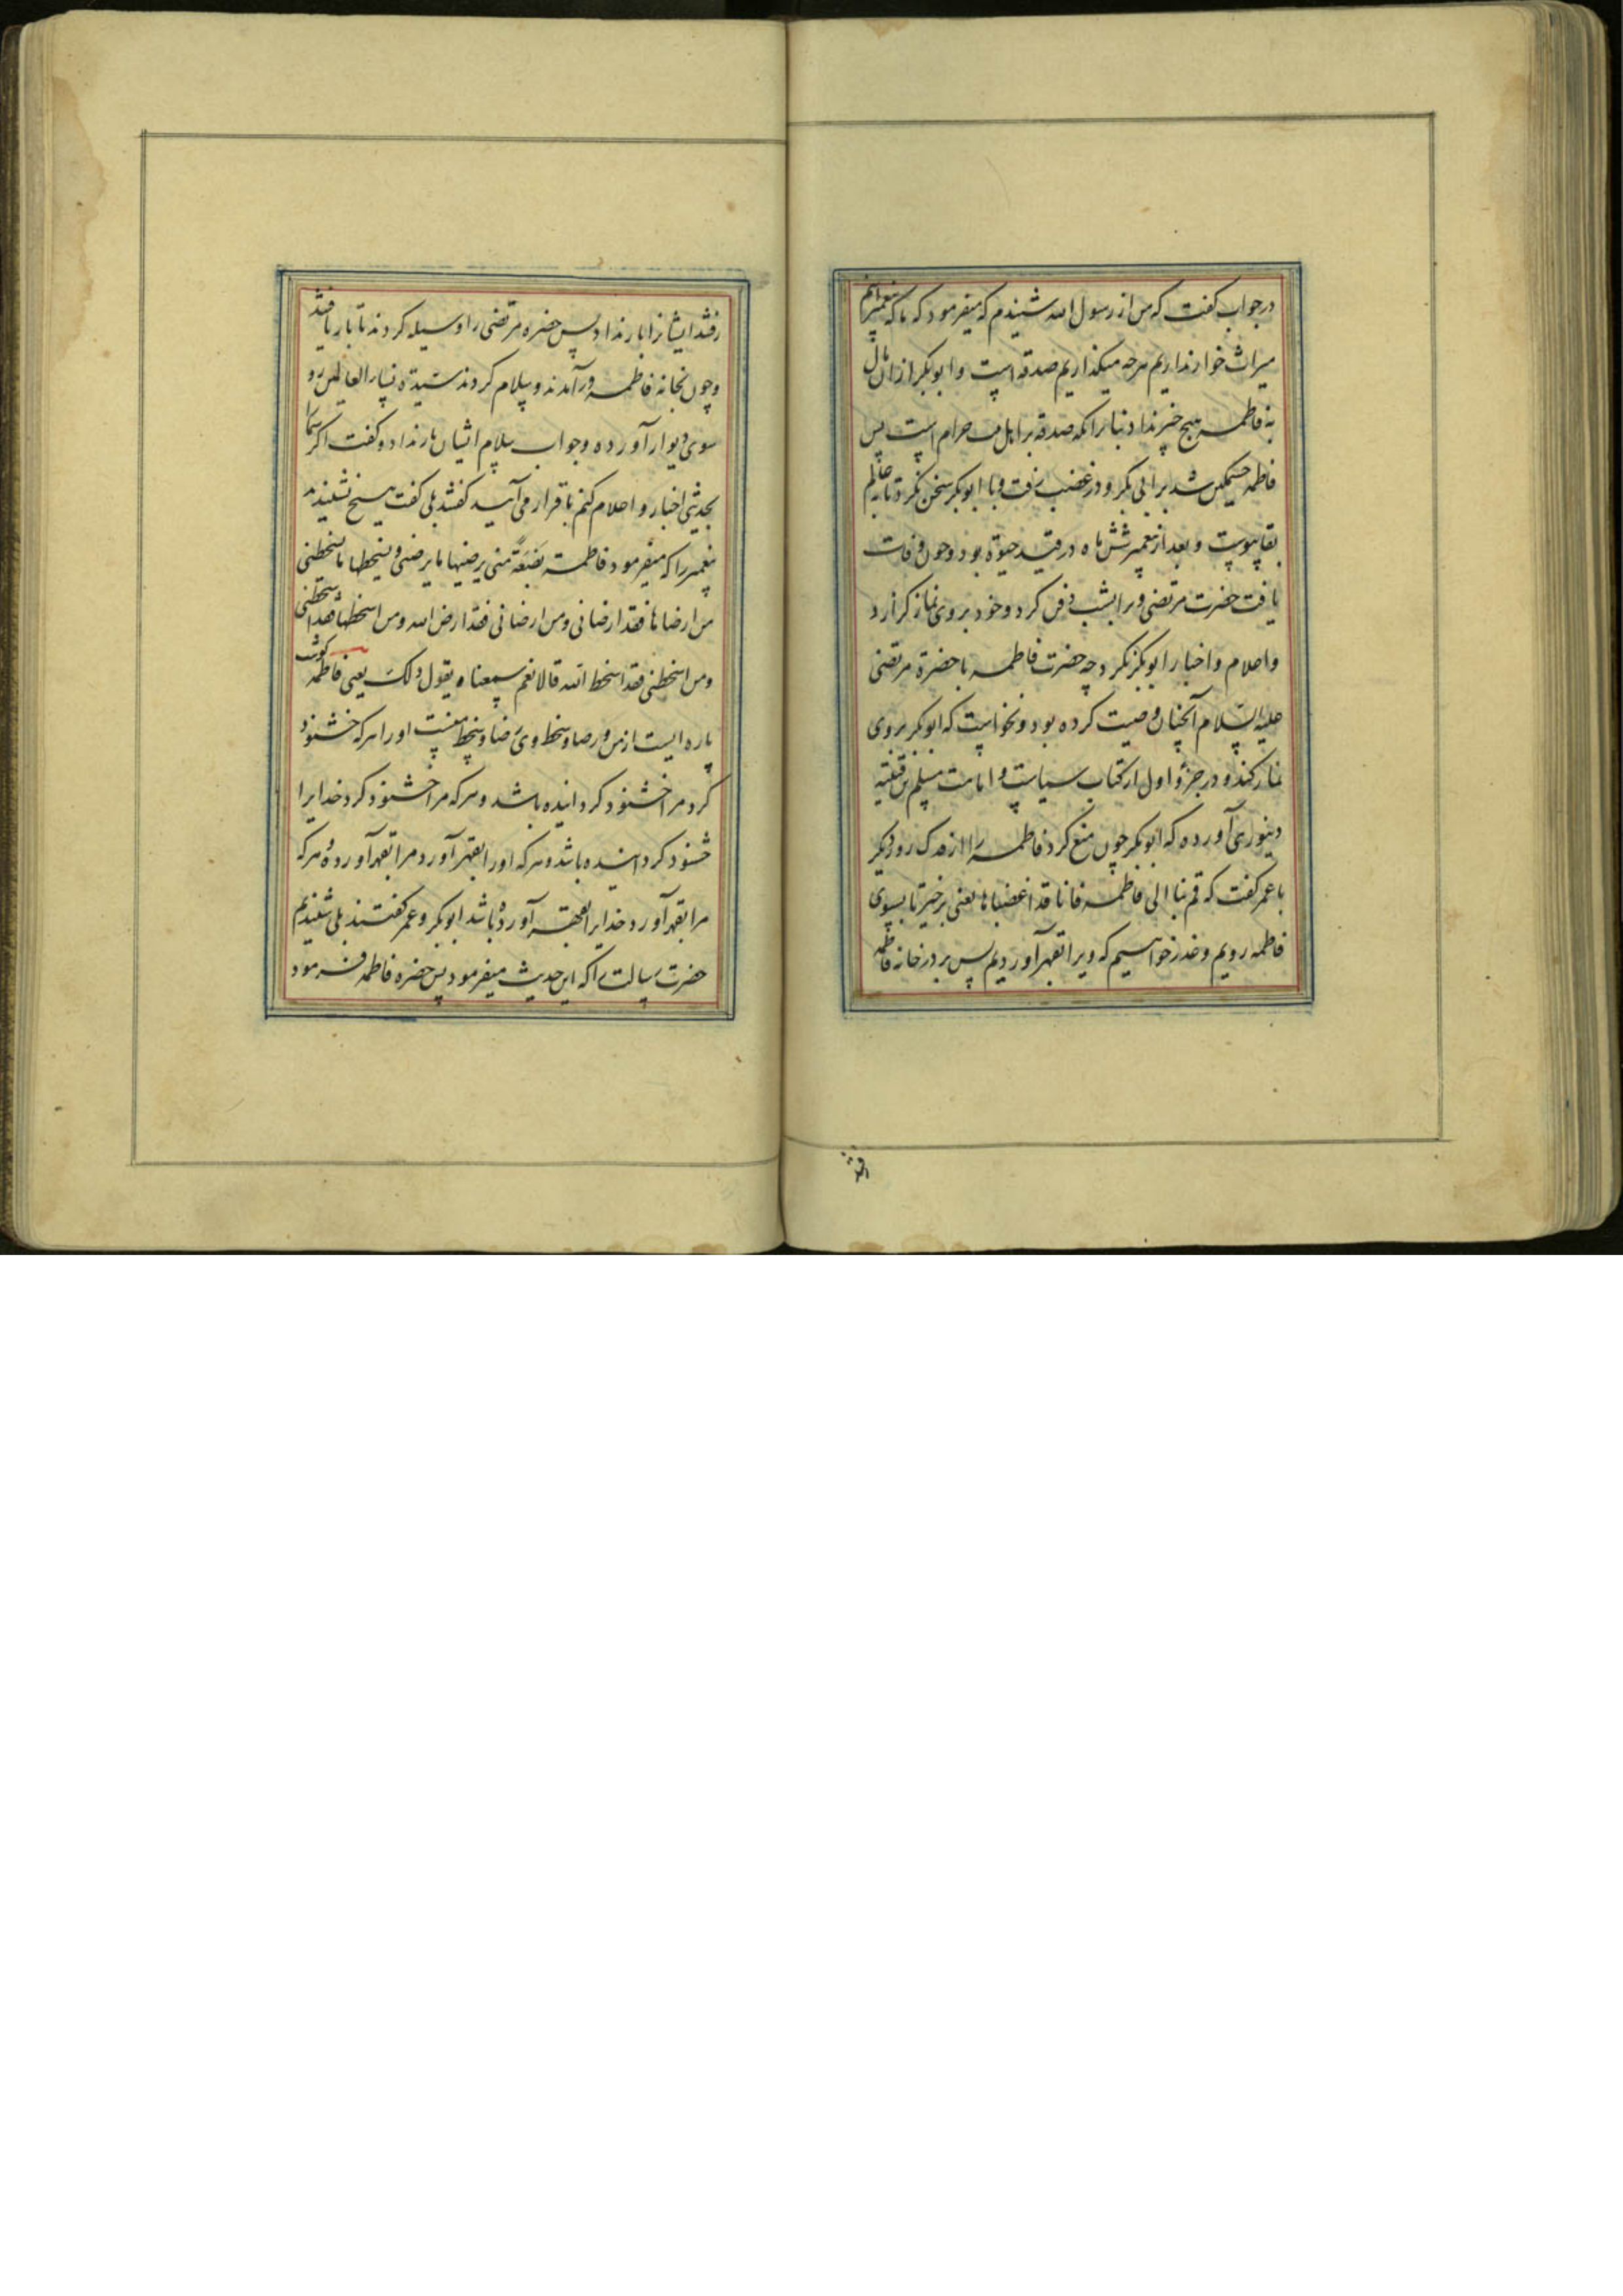 در جواب گفت که من از رسول الله شنیدم که میفرمود که ما که پیغمبرانیم
میراث خوار نداریم هرچه میگذاریم صدقه است و ابوبکر از ان مال
به فاطمه هیچ چیز نداد بنابرانکه صدقه بر اهل حرام است پس
فاطمه خشمکین شد بر ابی بکر و در غضب رفت و با ابوبکر سخن نکرد تا به عالم
بقا پیوست و بعد از پیغمبر شش ماه در قید حیوة بود و چون وفات
یافت حضرت مرتضی ویرا بشب دفن کرد و خود بر وی نماز کزارد
و اعلام و اخبار ابوبکر نکرد چه حضرت فاطمه با حضرة مرتضی
علیه السلام آنچنان وصیت کرده بود و نخواست که ابوبکر بر وی
نماز کند و در جزؤ اول از کتاب سیاست و امامت مسلم بن قتیبه
دینوری آورده که ابوبکر چون منع کرد فاطمه را از فدک روز دیکر
با عمر کفت که قم بنا الی فاطمه فانا قد اغضبناها یعنی برخیز تا بسوی
فاطمه رویم و عذر خواهیم که ویرا بقهر آوردیم پس بر در خانه فاطمه
رفتند
رفتند ایشانرا بار نداد پس حضره مرتضی را وسیله کردند تا بار یافتند
و چون بخانه فاطمه در آمدند و سلام کردند سیدة نساء العالمین رو
سوی دیوار آورده و جواب سلام ایشان باز نداد و کفت اکر شما را
بحدیثی اخبار و اعلام کنم باقرار می آیید کفتند بلی کفت هیچ نشنیدید
پیغمبر را که میفرمود فاطمة بضعة منی یرضیها ما یرضنی و یسخطها ما یسخطنی
من ارضاها فقد ارضانی و من ارضانی فقد ارض الله و من اسخطها فقد اسخطنی
و من اسخطنی فقد اسخط الله قالا نعم سمعناه یقول ذلک یعنی فاطمه کوشت
پاره ایست از من و رضا و سخط وی رضا و سخط منست او را هر که خشنود
کرد مرا خشنود کردانیده باشد و هر که مرا خشنود کرد خدایرا
خشنود کردانیده باشد و هر که او را بقهر آورد مرا بقهر آورده و هر که
مرا بقهر آورد خدایرا بقهر آورده باشد ابوبکر و عمر کفتند بلی شنیدیم
حضرت رسالت را که این حدیث میفرمود پس حضره فاطمه فرمود